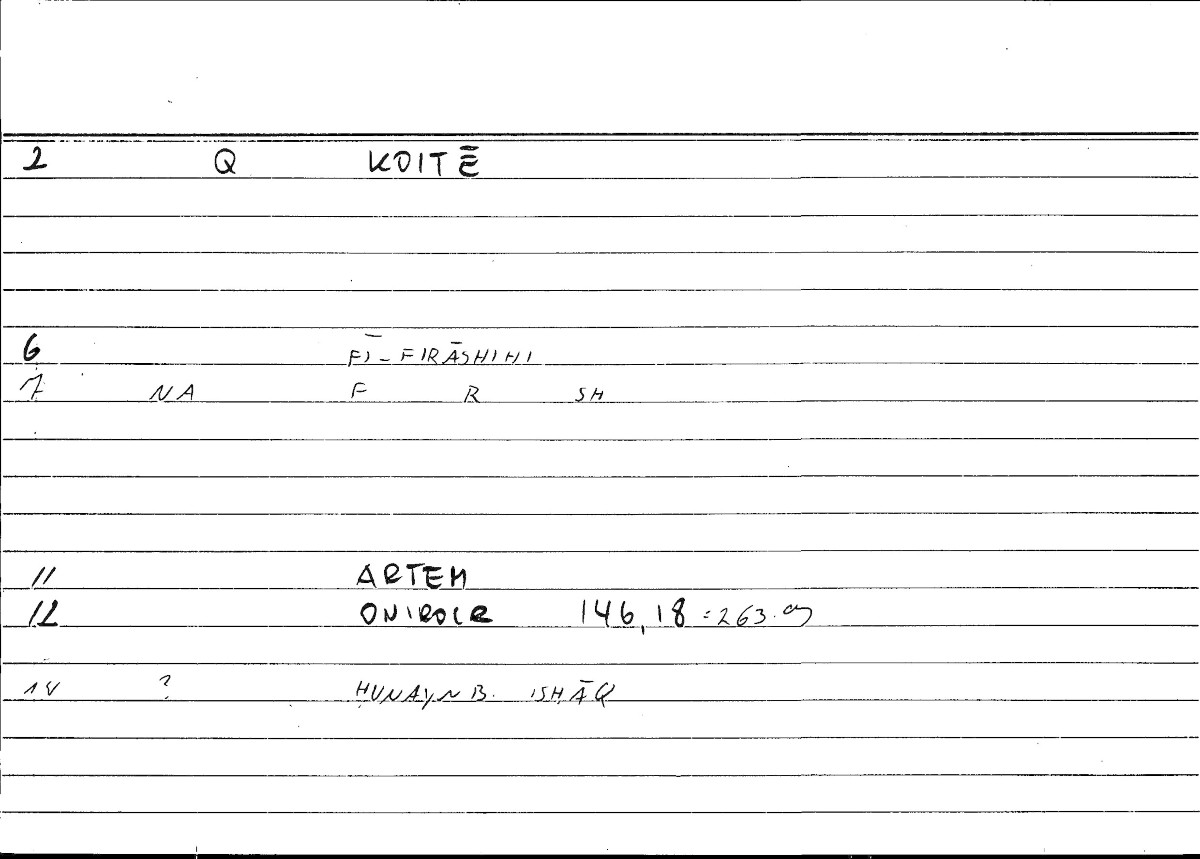 2 Q KOITĒ
6 FĪ-FIRĀSHIHI
7 NA F R SH
11 ARTEM
12 ONIROCR 146,18 = 263.
14 ? ḤUNAYN B. ISḤĀQ